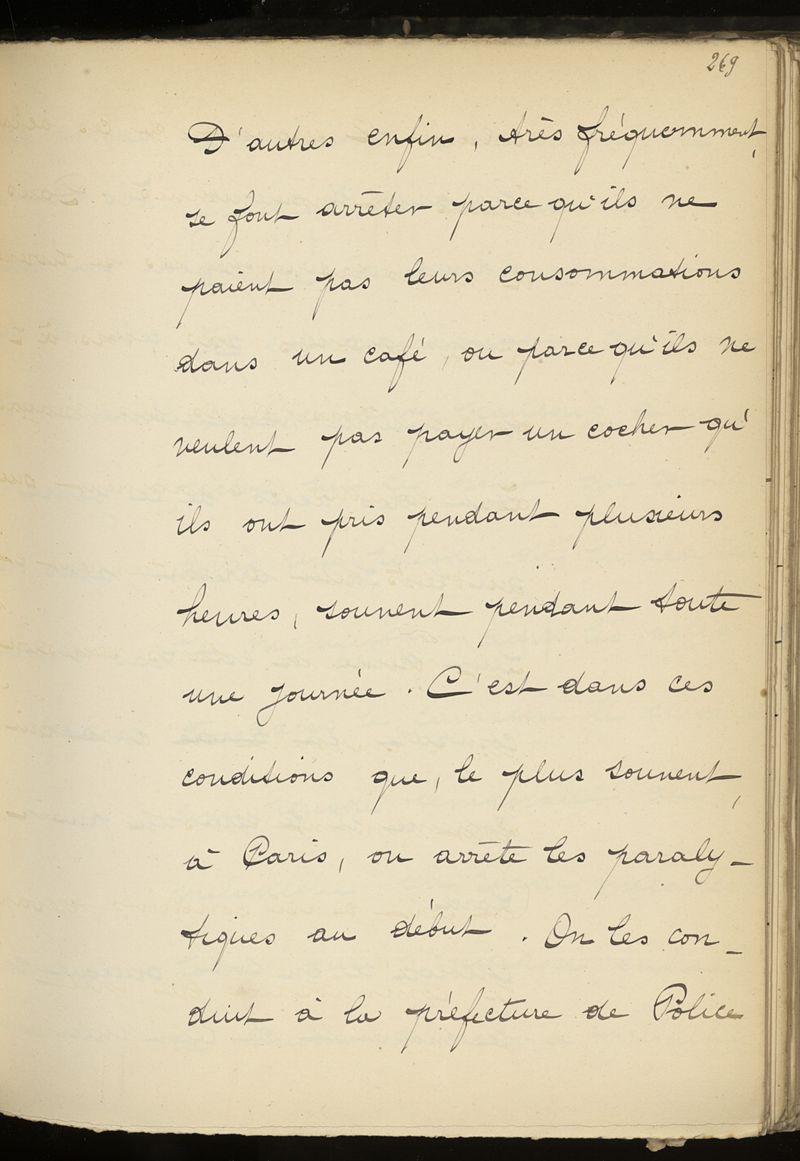 269
D'autres enfin, très fréquemment,
se font arrêter parce qu'ils ne
paient pas leurs consommations
dans un café, ou parce qu'ils ne
veulent pas payer un cocher qu'
ils ont pris pendant plusieurs
heures, souvent pendant toute
une journée. C'est dans ces
conditions que, le plus souvent,
à Paris, on arrête les paraly-
tiques au début. On les con-
duit à la préfecture de Police